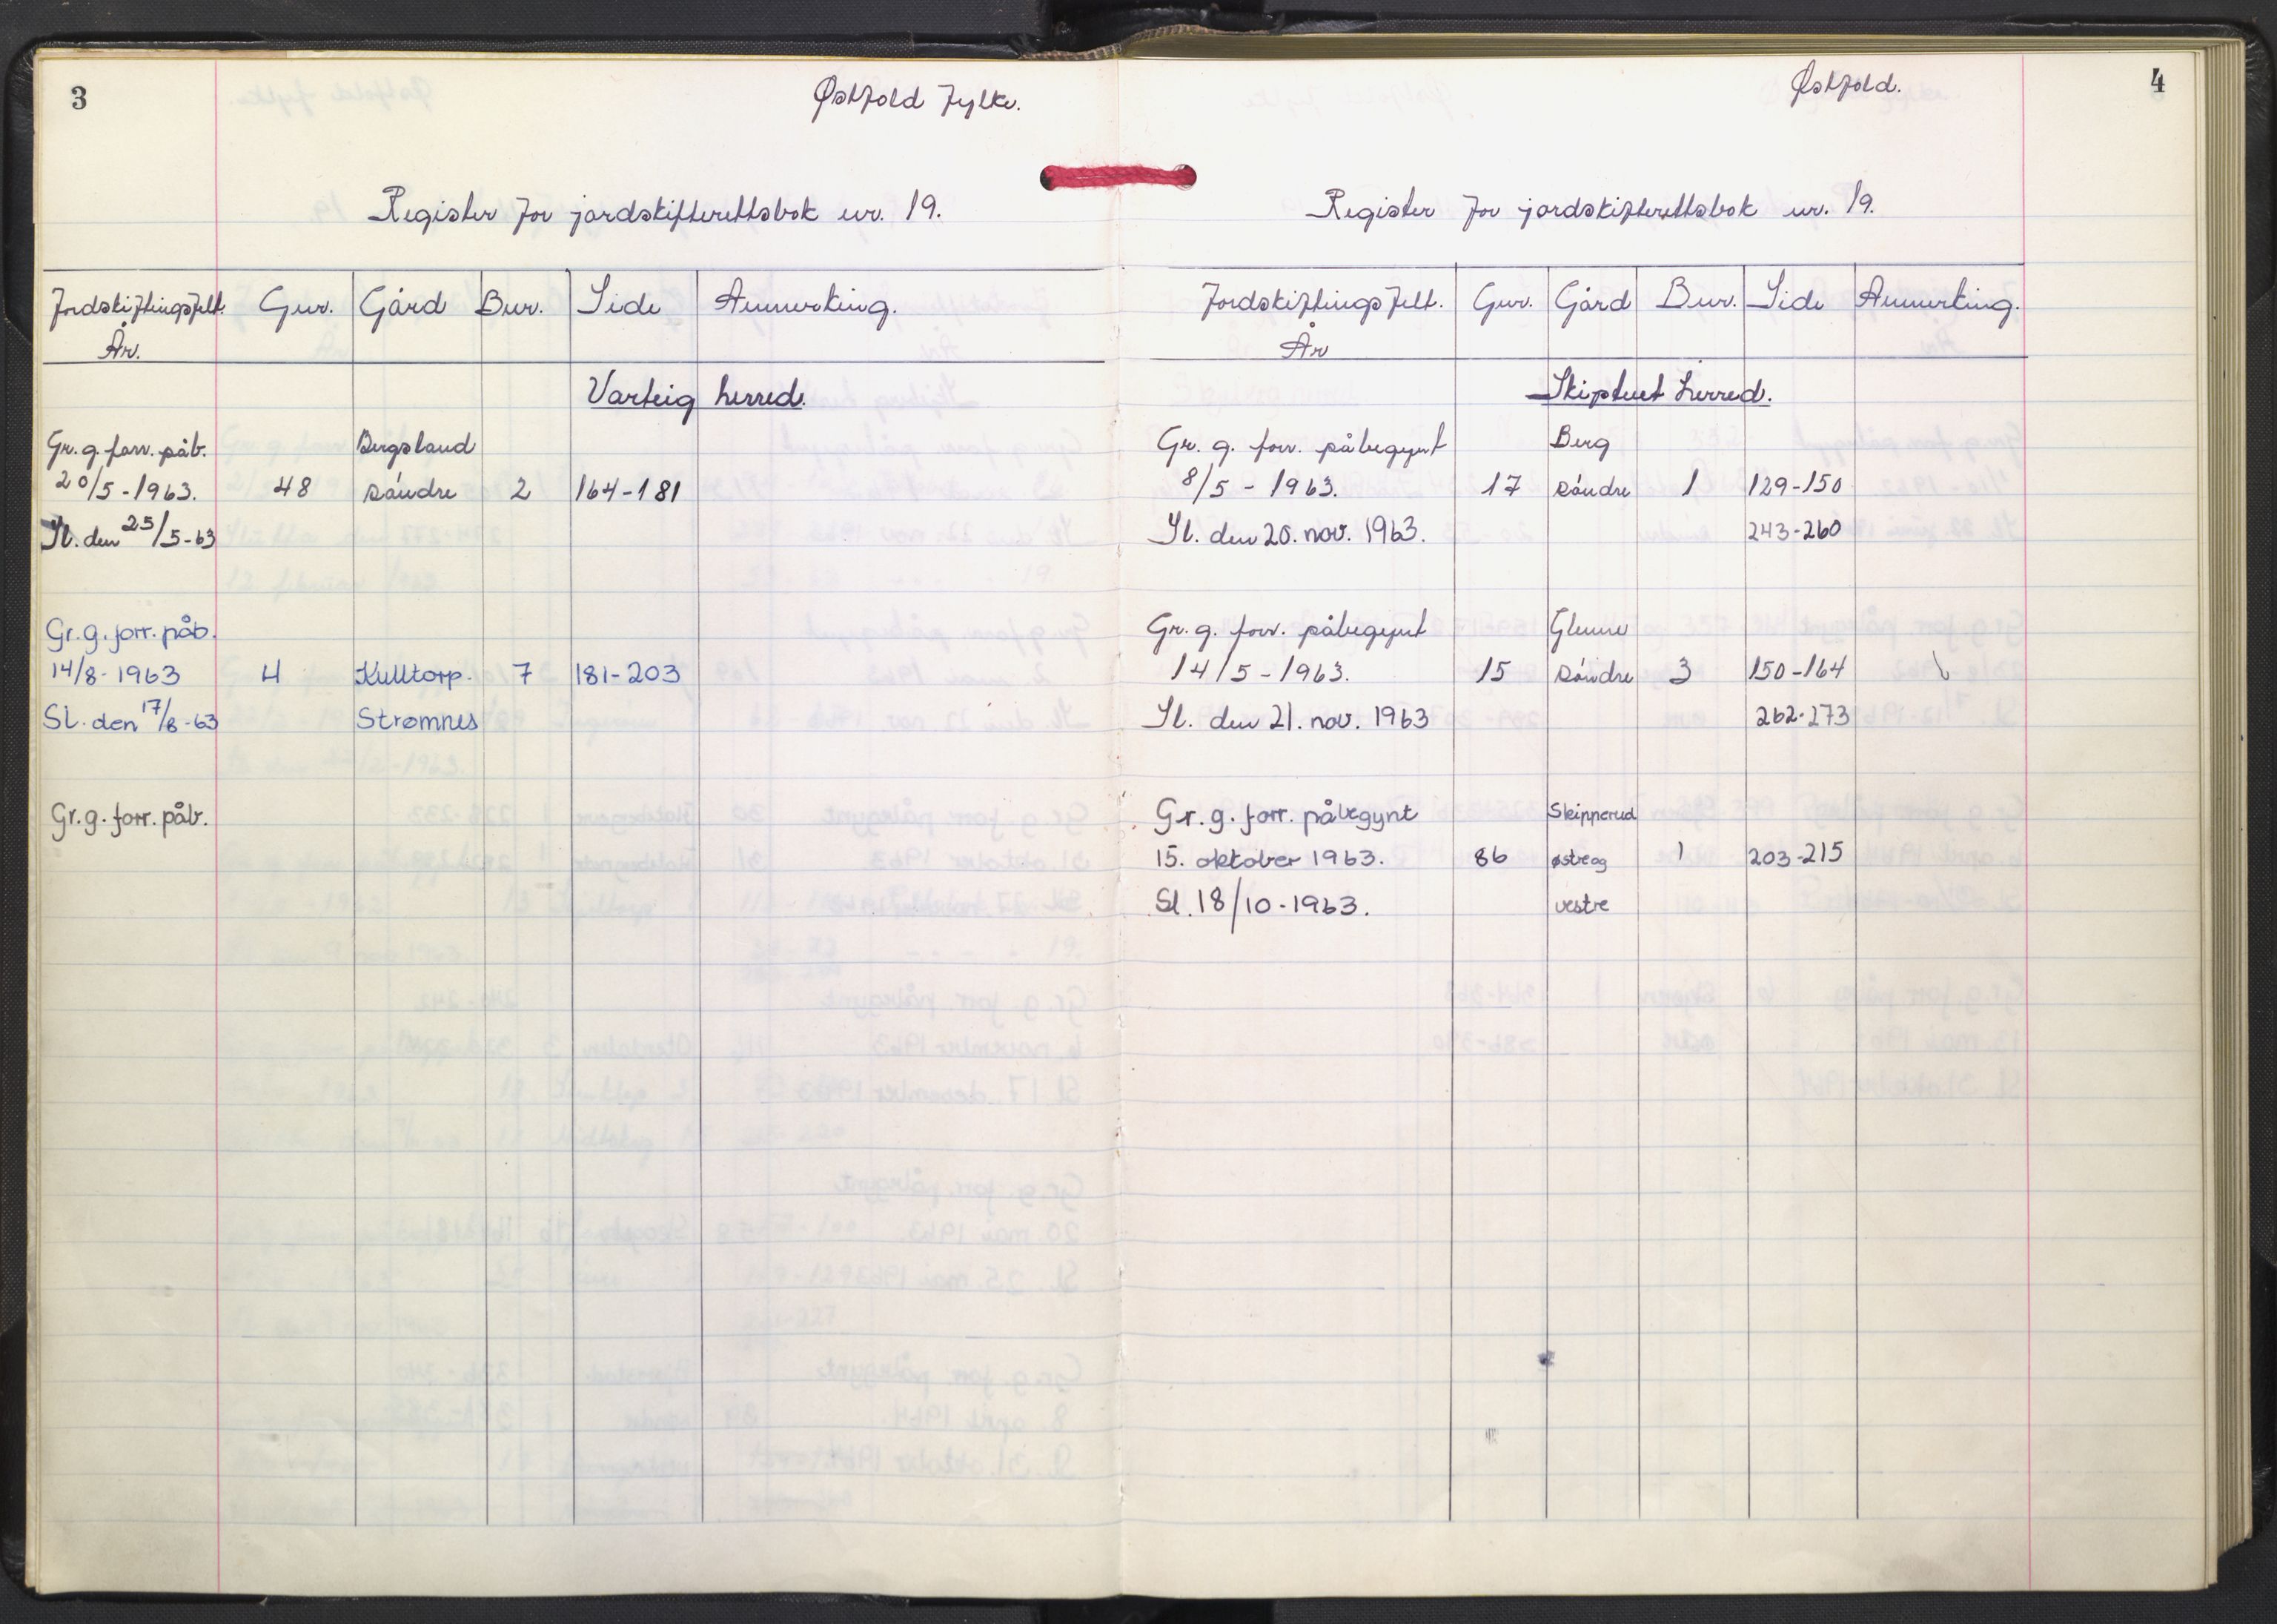 3
Østfold fylke.
Register for jordskifterettsbok nr. 19.
Jordskiftingsfelt. Gnr. Gård Bnr. Side Anmerking.
År.
Varteig herred.
Gr. g. forr. påb. Bergsland
20/5-1963. 48 søndre 2 164-181
Sl. den 25/5-63
Gr. g. forr. påb.
14/8-1963 4 Kulltorp. 7 181-203
Sl. den 17/8-63 Strømnes
Gr. g. forr. påb.
4
Østfold.
Register for jordskifterettsbok nr. 19.
Jordskiftingsfelt. Gnr. Gård Bnr. Side Anmerking.
År
Skiptvet herred.
Gr. g. forr. påbegynt Berg
8/5 - 1963. 17 søndre 1 129-150
Sl. den 20. nov. 1963. 243-260
Gr. g. forr. påbegynt Glenne
14/5 - 1963. 15 søndre 3 150-164
Sl. den 21. nov. 1963 262-273
Gr. g. forr. påbegynt Skipperud
15. oktober 1963. 86 østre og 1 203-215
Sl. 18/10-1963. vestre